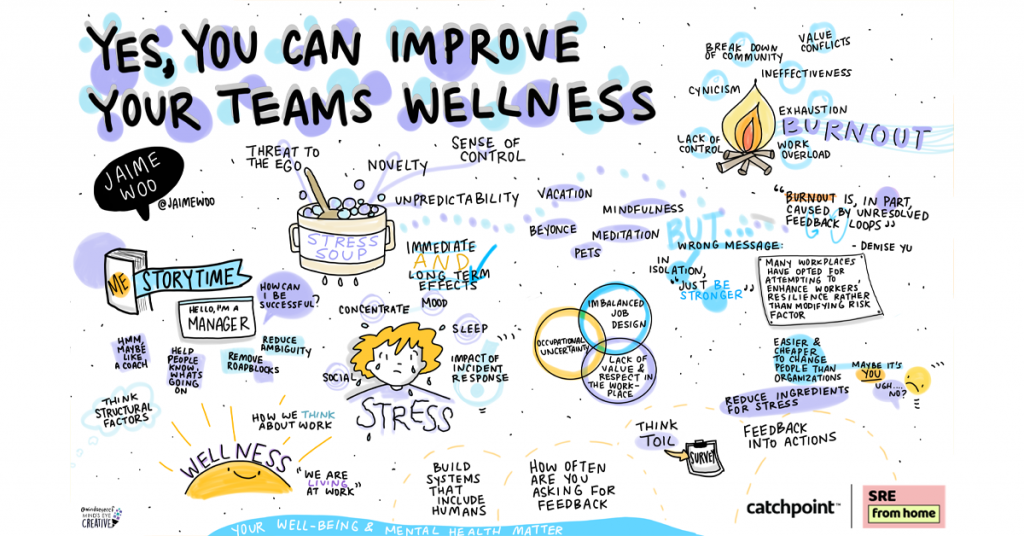 YES, YOU CAN IMPROVE
YOUR TEAMS WELLNESS
JAIME
WOO
@JAIMEWOO
THREAT TO
THE EGO
NOVELTY
SENSE OF
CONTROL
UNPREDICTABILITY
STRESS
SOUP
IMMEDIATE
AND
LONG TERM
EFFECTS
VACATION
MINDFULNESS
BEYONCE
MEDITATION
PETS
BUT...
WRONG MESSAGE:
IN
ISOLATION,
"JUST BE
STRONGER"
BREAK DOWN
OF COMMUNITY
VALUE
CONFLICTS
INEFFECTIVENESS
CYNICISM
EXHAUSTION
BURNOUT
LACK OF
CONTROL
WORK
OVERLOAD
"BURNOUT IS, IN PART,
CAUSED BY UNRESOLVED
FEEDBACK LOOPS"
- DENISE YU
MANY WORKPLACES
HAVE OPTED FOR
ATTEMPTING TO
ENHANCE WORKERS
RESILIENCE RATHER
THAN MODIFYING RISK
FACTOR
ME
STORYTIME
HELLO, I'M A
MANAGER
HOW CAN
I BE
SUCCESSFUL?
HMM,
MAYBE
LIKE
A COACH
HELP
PEOPLE
KNOW.
WHATS
GOING
ON
REDUCE
AMBIGUITY
REMOVE
ROADBLOCKS
THINK
STRUCTURAL
FACTORS
CONCENTRATE
MOOD
SLEEP
SOCIAL
IMPACT OF
INCIDENT
RESPONSE
STRESS
IMBALANCED
JOB
DESIGN
OCCUPATIONAL
UNCERTAINTY
LACK OF
VALUE &
RESPECT IN
THE WORK-
PLACE
EASIER &
CHEAPER
TO CHANGE
PEOPLE THAN
ORGANIZATIONS
MAYBE IT'S
YOU
UGH....
NO?
REDUCE INGREDIENTS
FOR STRESS
HOW WE THINK
ABOUT WORK
WELLNESS
"WE ARE
LIVING
AT WORK"
BUILD
SYSTEMS
THAT
INCLUDE
HUMANS
HOW OFTEN
ARE YOU
ASKING FOR
FEEDBACK
THINK
TOIL
SURVEY
FEEDBACK
INTO ACTIONS
MINDS EYE
CREATIVE
YOUR WELL-BEING & MENTAL HEALTH MATTER
catchpoint™
SRE
from home